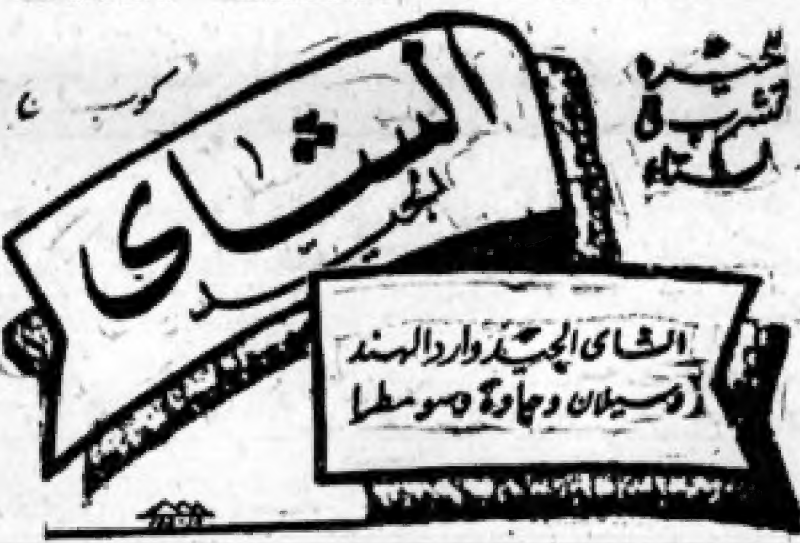 خير
تشرب في
الشتاء
كوب
الشاى
الجيد
الشاى الجيد وارد الهند
وسيلان وجاوة وسومطرا